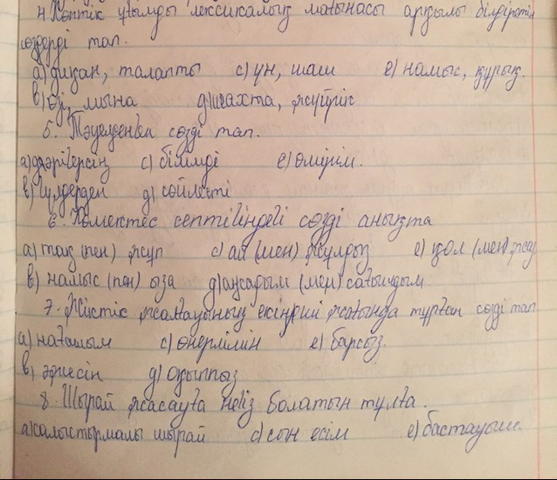 4) Көптік ұғымды лексикалық мағынасы арқылы білдіретін
сөздерді тап.
а) диқан, талапты с) ұн, шаш е) намыс, құрық.
в) өзі, мына д) шахта, жүйрік
5. Тәуелденген сөзді тап.
а) дәрігерсің с) білімді е) өмірім.
в) гүлдерден д) сөйлесті
6. Көмектес септігіндегі сөзді анықта
а) таң (пен) жұп с) ай (мен) жұлдыз е) қол (мен) жу
в) намыс (пен) ыза д) аңсадым (мен) сағындым
7. Жіктік жалғауының екінші жағында тұрған сөзді тап
а) нағашым с) өнерлімін е) барсыз.
в) әжесін д) оқыппыз
8. Шырай жасауға негіз болатын тұлға.
а) салыстырмалы шырай с) сын есім е) бастауыш.